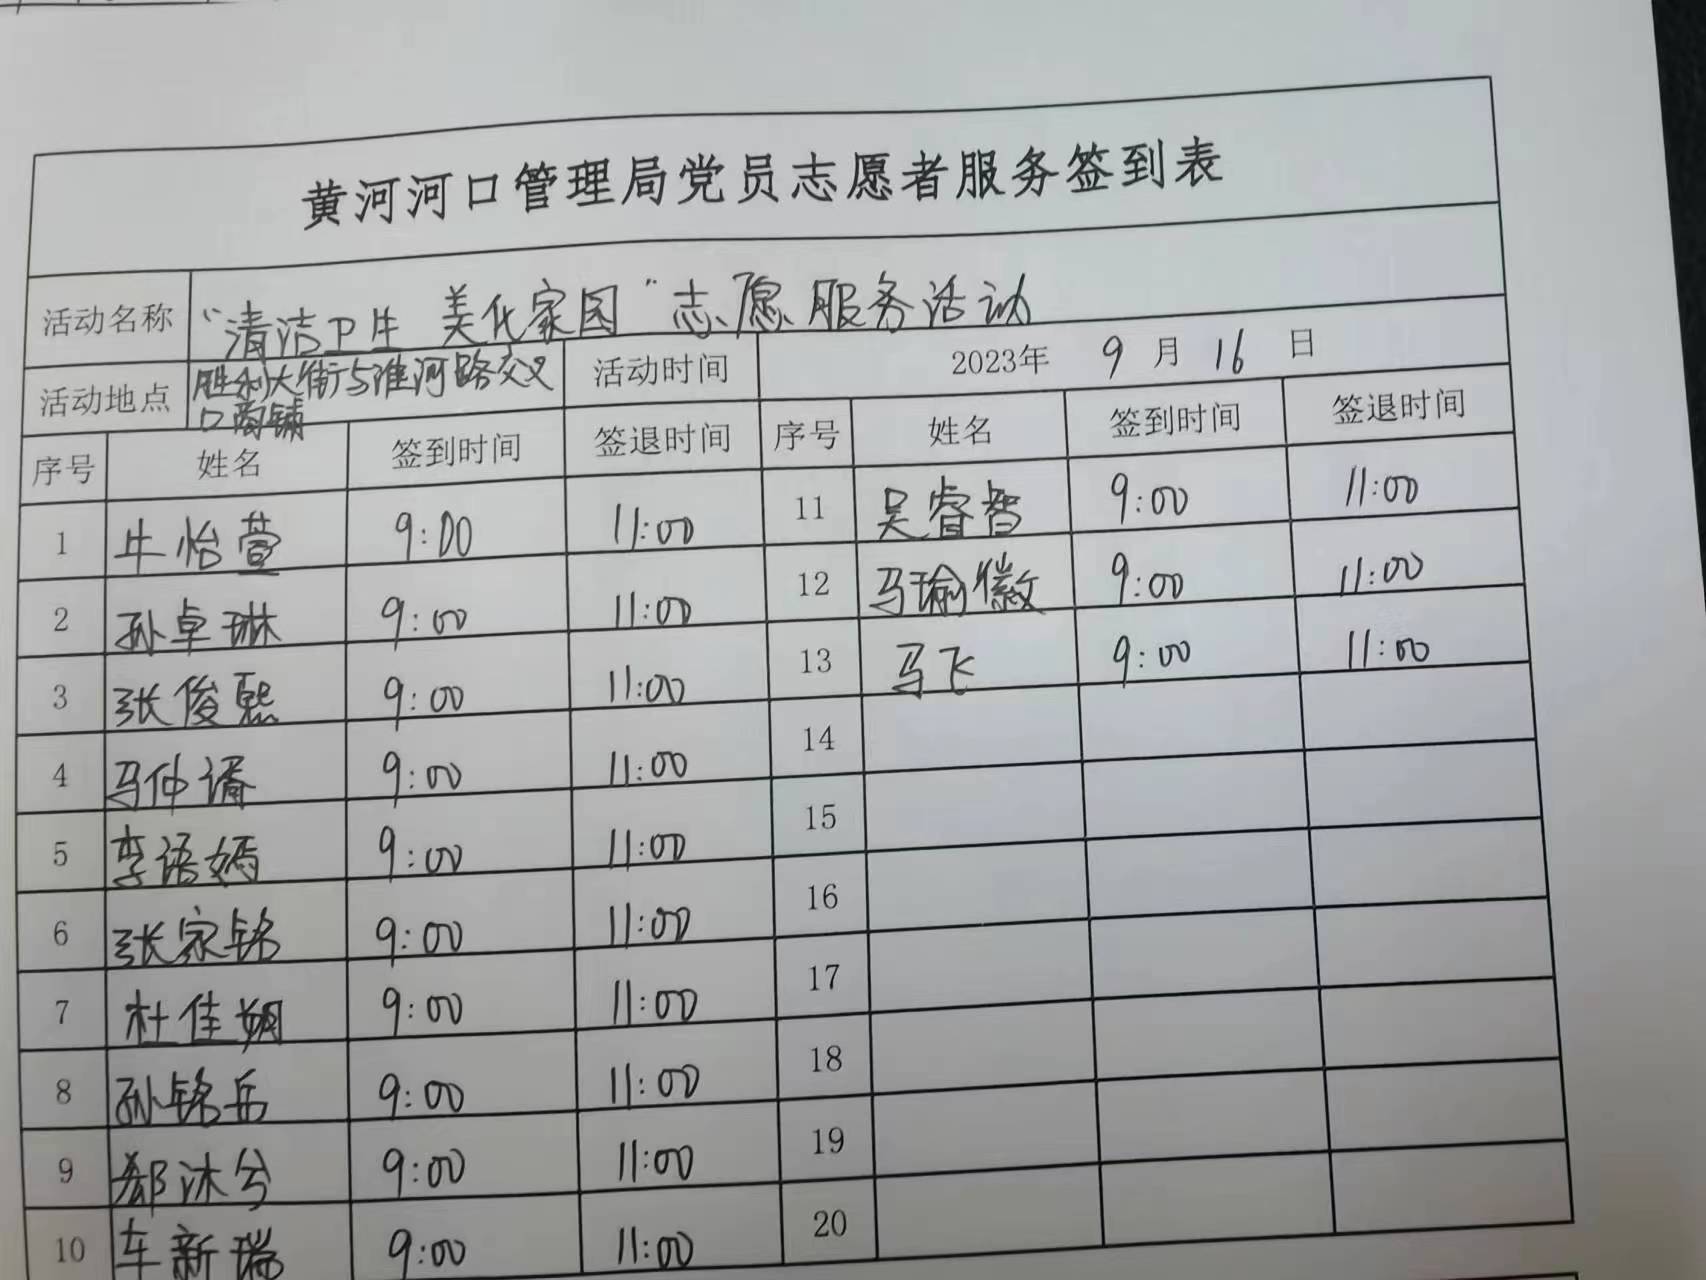 黄河河口管理局党员志愿者服务签到表
活动名称 “清洁卫生 美化家园”志愿服务活动
活动地点 胜利大街与淮河路交叉口商铺 活动时间 2023年 9 月 16 日
序号 姓名 签到时间 签退时间 序号 姓名 签到时间 签退时间
1 牛怡萱 9:00 11:00 11 吴睿智 9:00 11:00
2 孙卓琳 9:00 11:00 12 马瑜徽 9:00 11:00
3 张俊熙 9:00 11:00 13 马飞 9:00 11:00
4 马仲谞 9:00 11:00 14
5 李语嫣 9:00 11:00 15
6 张家铭 9:00 11:00 16
7 杜佳 9:00 11:00 17
8 孙铭岳 9:00 11:00 18
9 郗沐兮 9:00 11:00 19
10 车新瑞 9:00 11:00 20